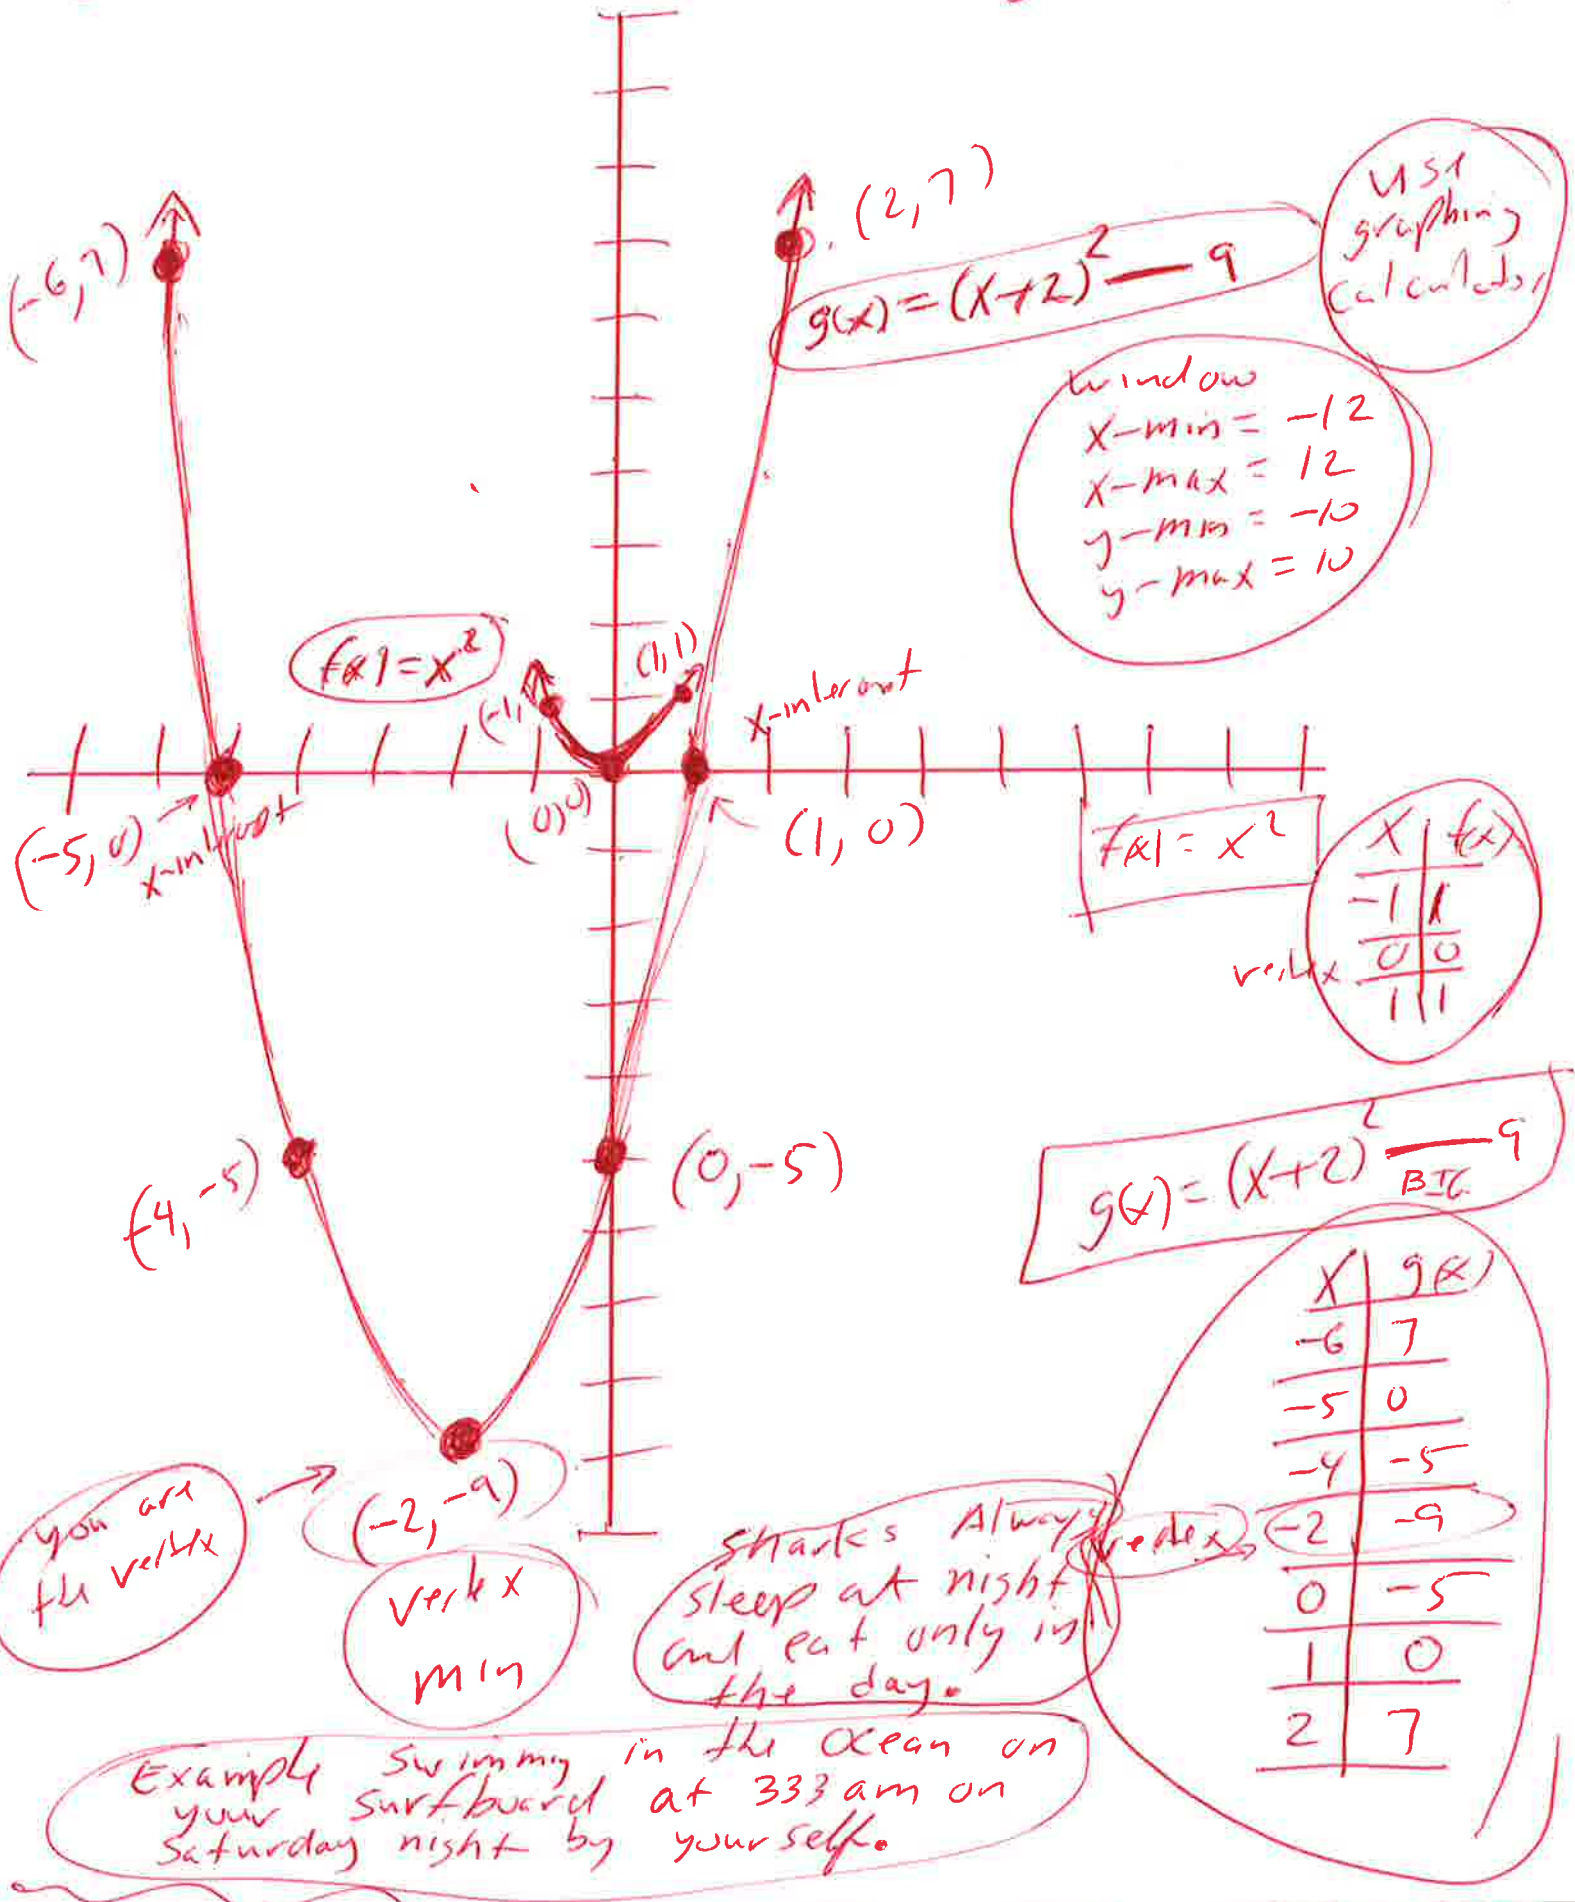 (2,7)
(-6,7)
g(x) = (x+2)² — 9
use
graphing
calculator
window
x-min = -12
x-max = 12
y-min = -10
y-max = 10
f(x) = x²
(-1,
(1,1)
x-intercept
(0,0)
(-5,0)
x-intercept
(1,0)
f(x) = x²
x | f(x)
-1 | 1
vertex 0 | 0
1 | 1
(-4,-5)
(0,-5)
g(x) = (x+2)² — 9
BIG
x | g(x)
-6 | 7
-5 | 0
-4 | -5
vertex → -2 | -9
0 | -5
1 | 0
2 | 7
you are
the vertex
(-2,-9)
vertex
min
Sharks Always
sleep at night
and eat only in
the day.
Example swimming in the ocean on
your surfboard at 333 am on
Saturday night by yourself.